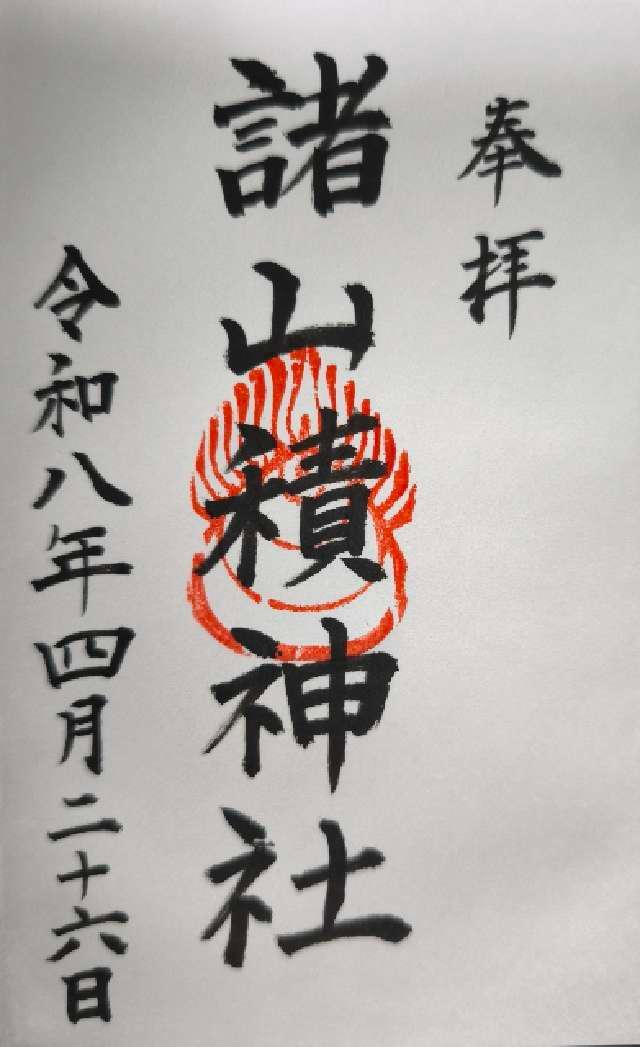 奉拝
諸山積神社
令和八年四月二十六日